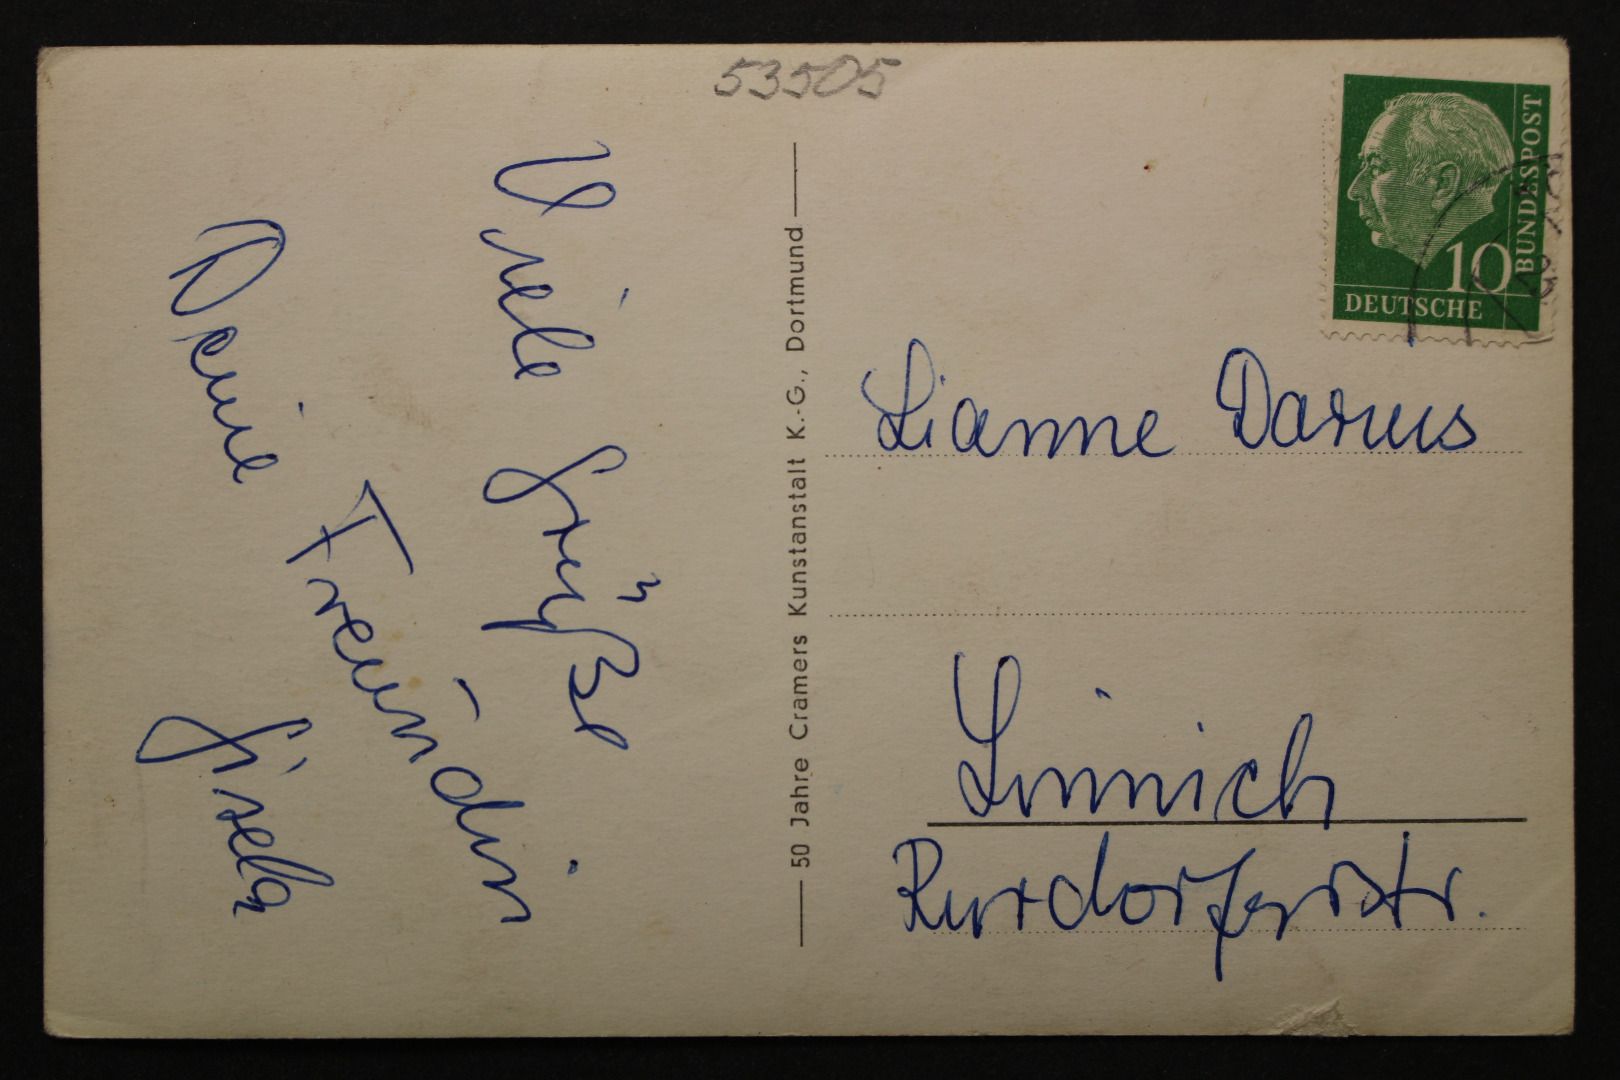 53505
Viele Grüße
Deine Freundin
Gisela
50 Jahre Cramers Kunstanstalt K.-G., Dortmund
DEUTSCHE
BUNDESPOST
10
Lianne Darius
Linnich
Rurdorferstr.